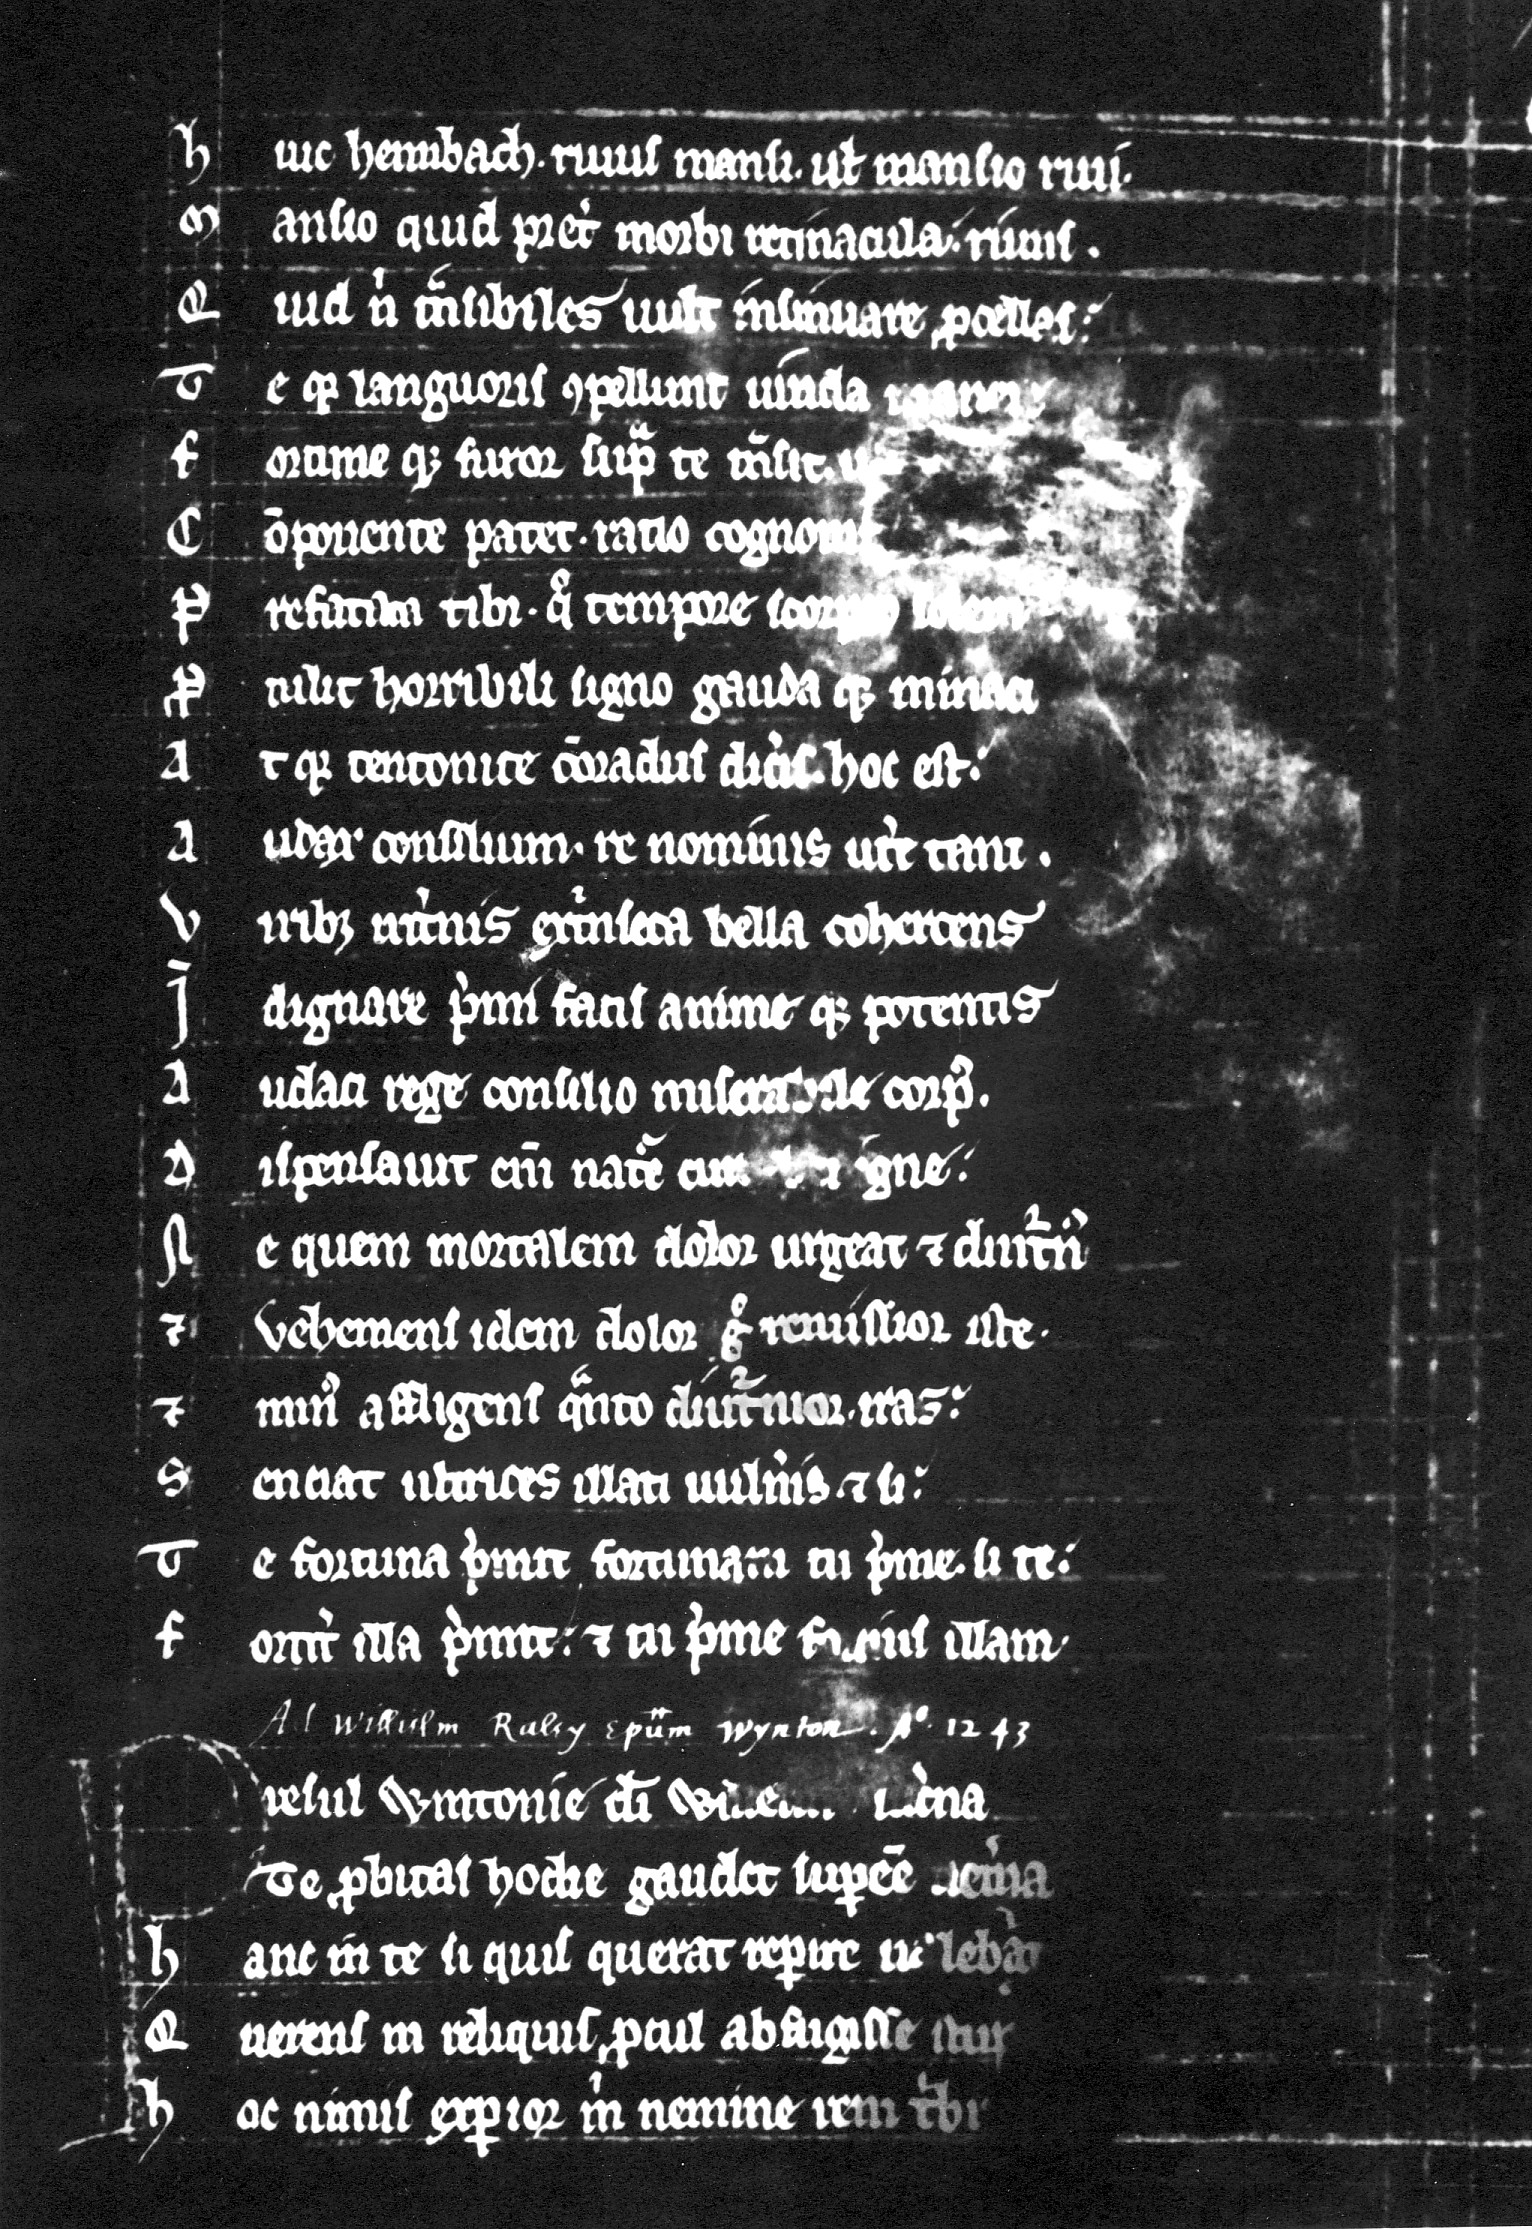 h uic hennibach. riuus mansi. ul mansio riui.
M ansio quid pret morbi retinacula. riuus.
Q uid n tnsibiles uult insinuare procellas.
T e qz languoris 9pellunt uincla
f ortune qz furor supa te tnsit.
C oponente patet. ratio cognominis
P refatum tibi. qo tempore scorpio solem
P tulit horribili signo gauda qz minaci
A t qz teutonice coradus dicis. hoc est.
A udax consilium. re nominis utere tanti.
V irib3 internis extinseca bella cohercens
I dignare pimi facis anime qz potentis
A udaci rege consilio miserabile corp9.
D ispensauit cui nate igne.
N e quem mortalem dolor urgeat ⁊ diuitn9
⁊ Vehemens idem dolor go remissior iste.
⁊ min9 affligens qanto diutnior. iras.
S enciat ultrices illati uulnis. ⁊ si.
T e fortuna pimit fortunam tu pime. si te.
f ortit illa pimit. ⁊ tu pime forcius illam
Ad Willielm Raley Epum Wynton. Ao. 1243
P resul Wintonie di
Te probitas hodie gaudet supee
h anc in te si quis querat repire
Q uerens in reliquis procul abfugisse
h oc nimis experior in nemine rem